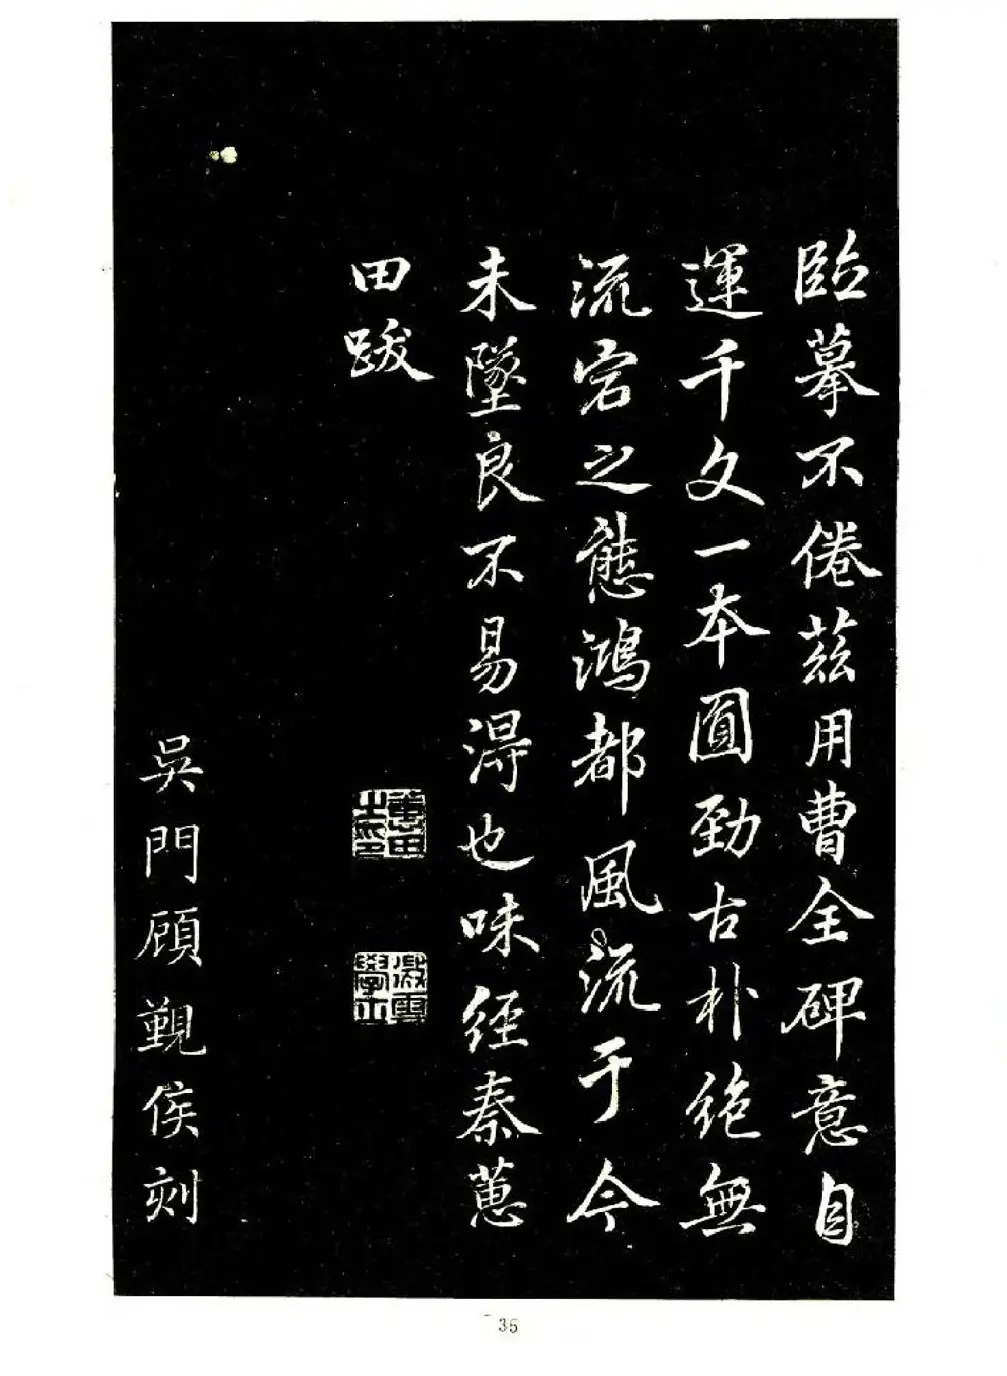 臨摹不倦茲用曹全碑意自
運千文一本圓勁古朴絶無
流宕之態鴻都風流于今
未墜良不易淂也味經秦蕙
田跋
蕙田之印
吳門顧觐侯刻
35